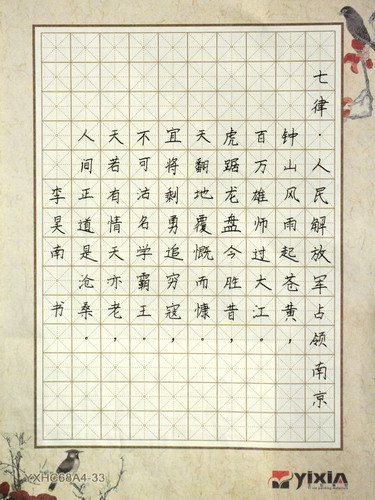 七律·人民解放军占领南京
钟山风雨起苍黄，
百万雄师过大江。
虎踞龙盘今胜昔，
天翻地覆慨而慷。
宜将剩勇追穷寇，
不可沽名学霸王。
天若有情天亦老，
人间正道是沧桑。
李昊南 书
YXHC68A4-33
yixiA